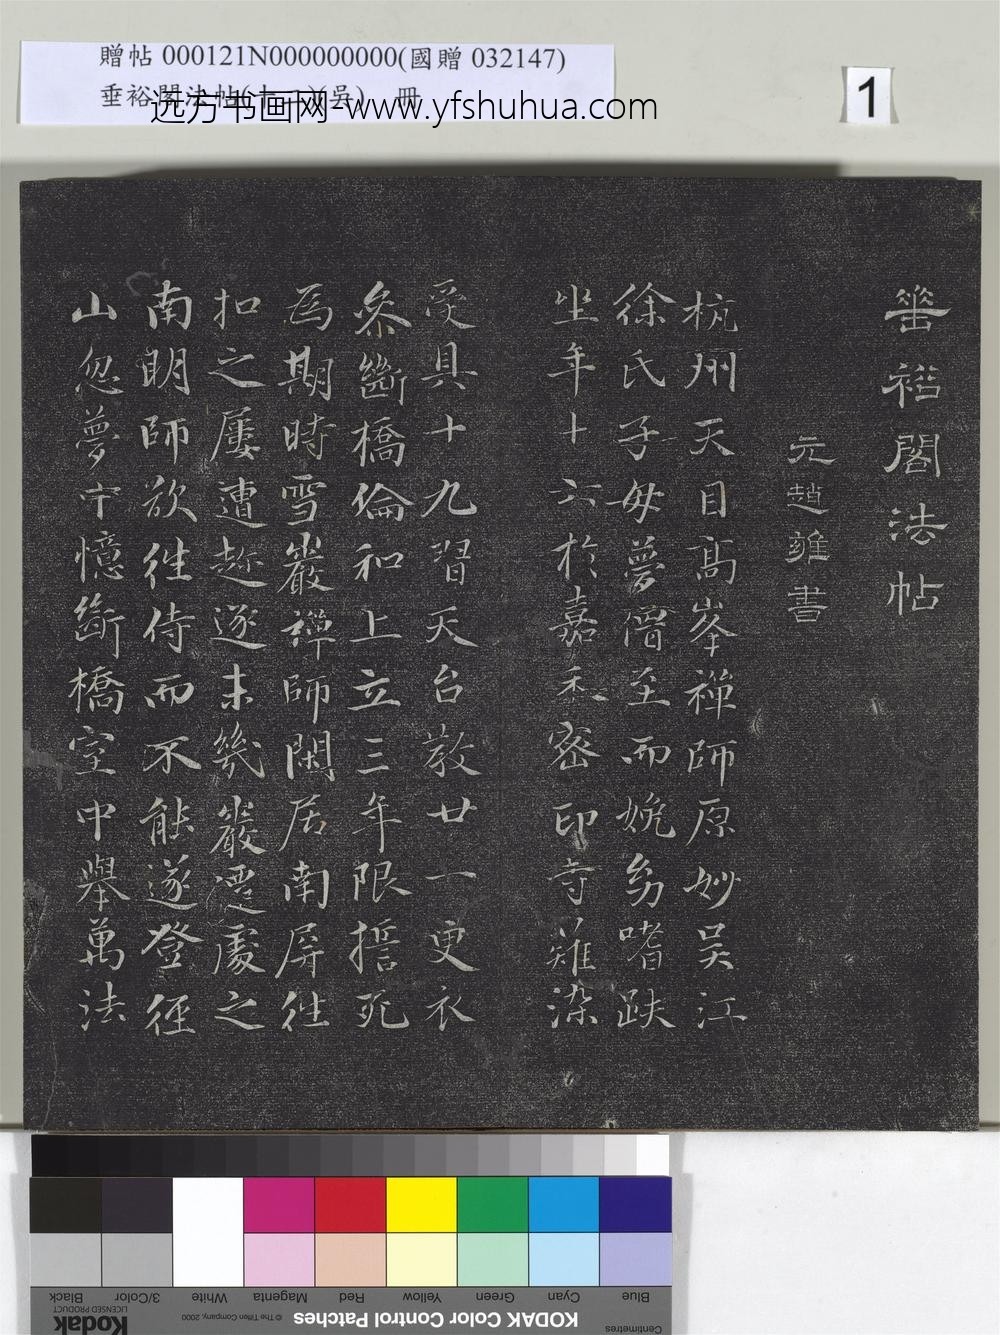 贈帖 000121N000000000(國贈 032147)
垂裕閣法帖(吳) 冊
远方书画网-www.yfshuhua.com
1
垂裕閣法帖
元趙雍書
杭州天目高峯禪師原妙吳江
徐氏子母夢僧至而娩幼嗜趺
坐年十六於嘉禾密印寺薙染
受具十九習天台教廿一更衣
叅斷橋倫和上立三年限誓死
為期時雪巖禪師閑居南屏往
扣之屢遭趂逐未幾巖遷處之
南明師欲往侍而不能遂登徑
山忽夢中憶斷橋室中舉萬法
Black 3/Color White Magenta Red Yellow Green Cyan Blue
Kodak
LICENSED PRODUCT
© The Tiffen Company, 2000
KODAK Color Control Patches
Centimetres